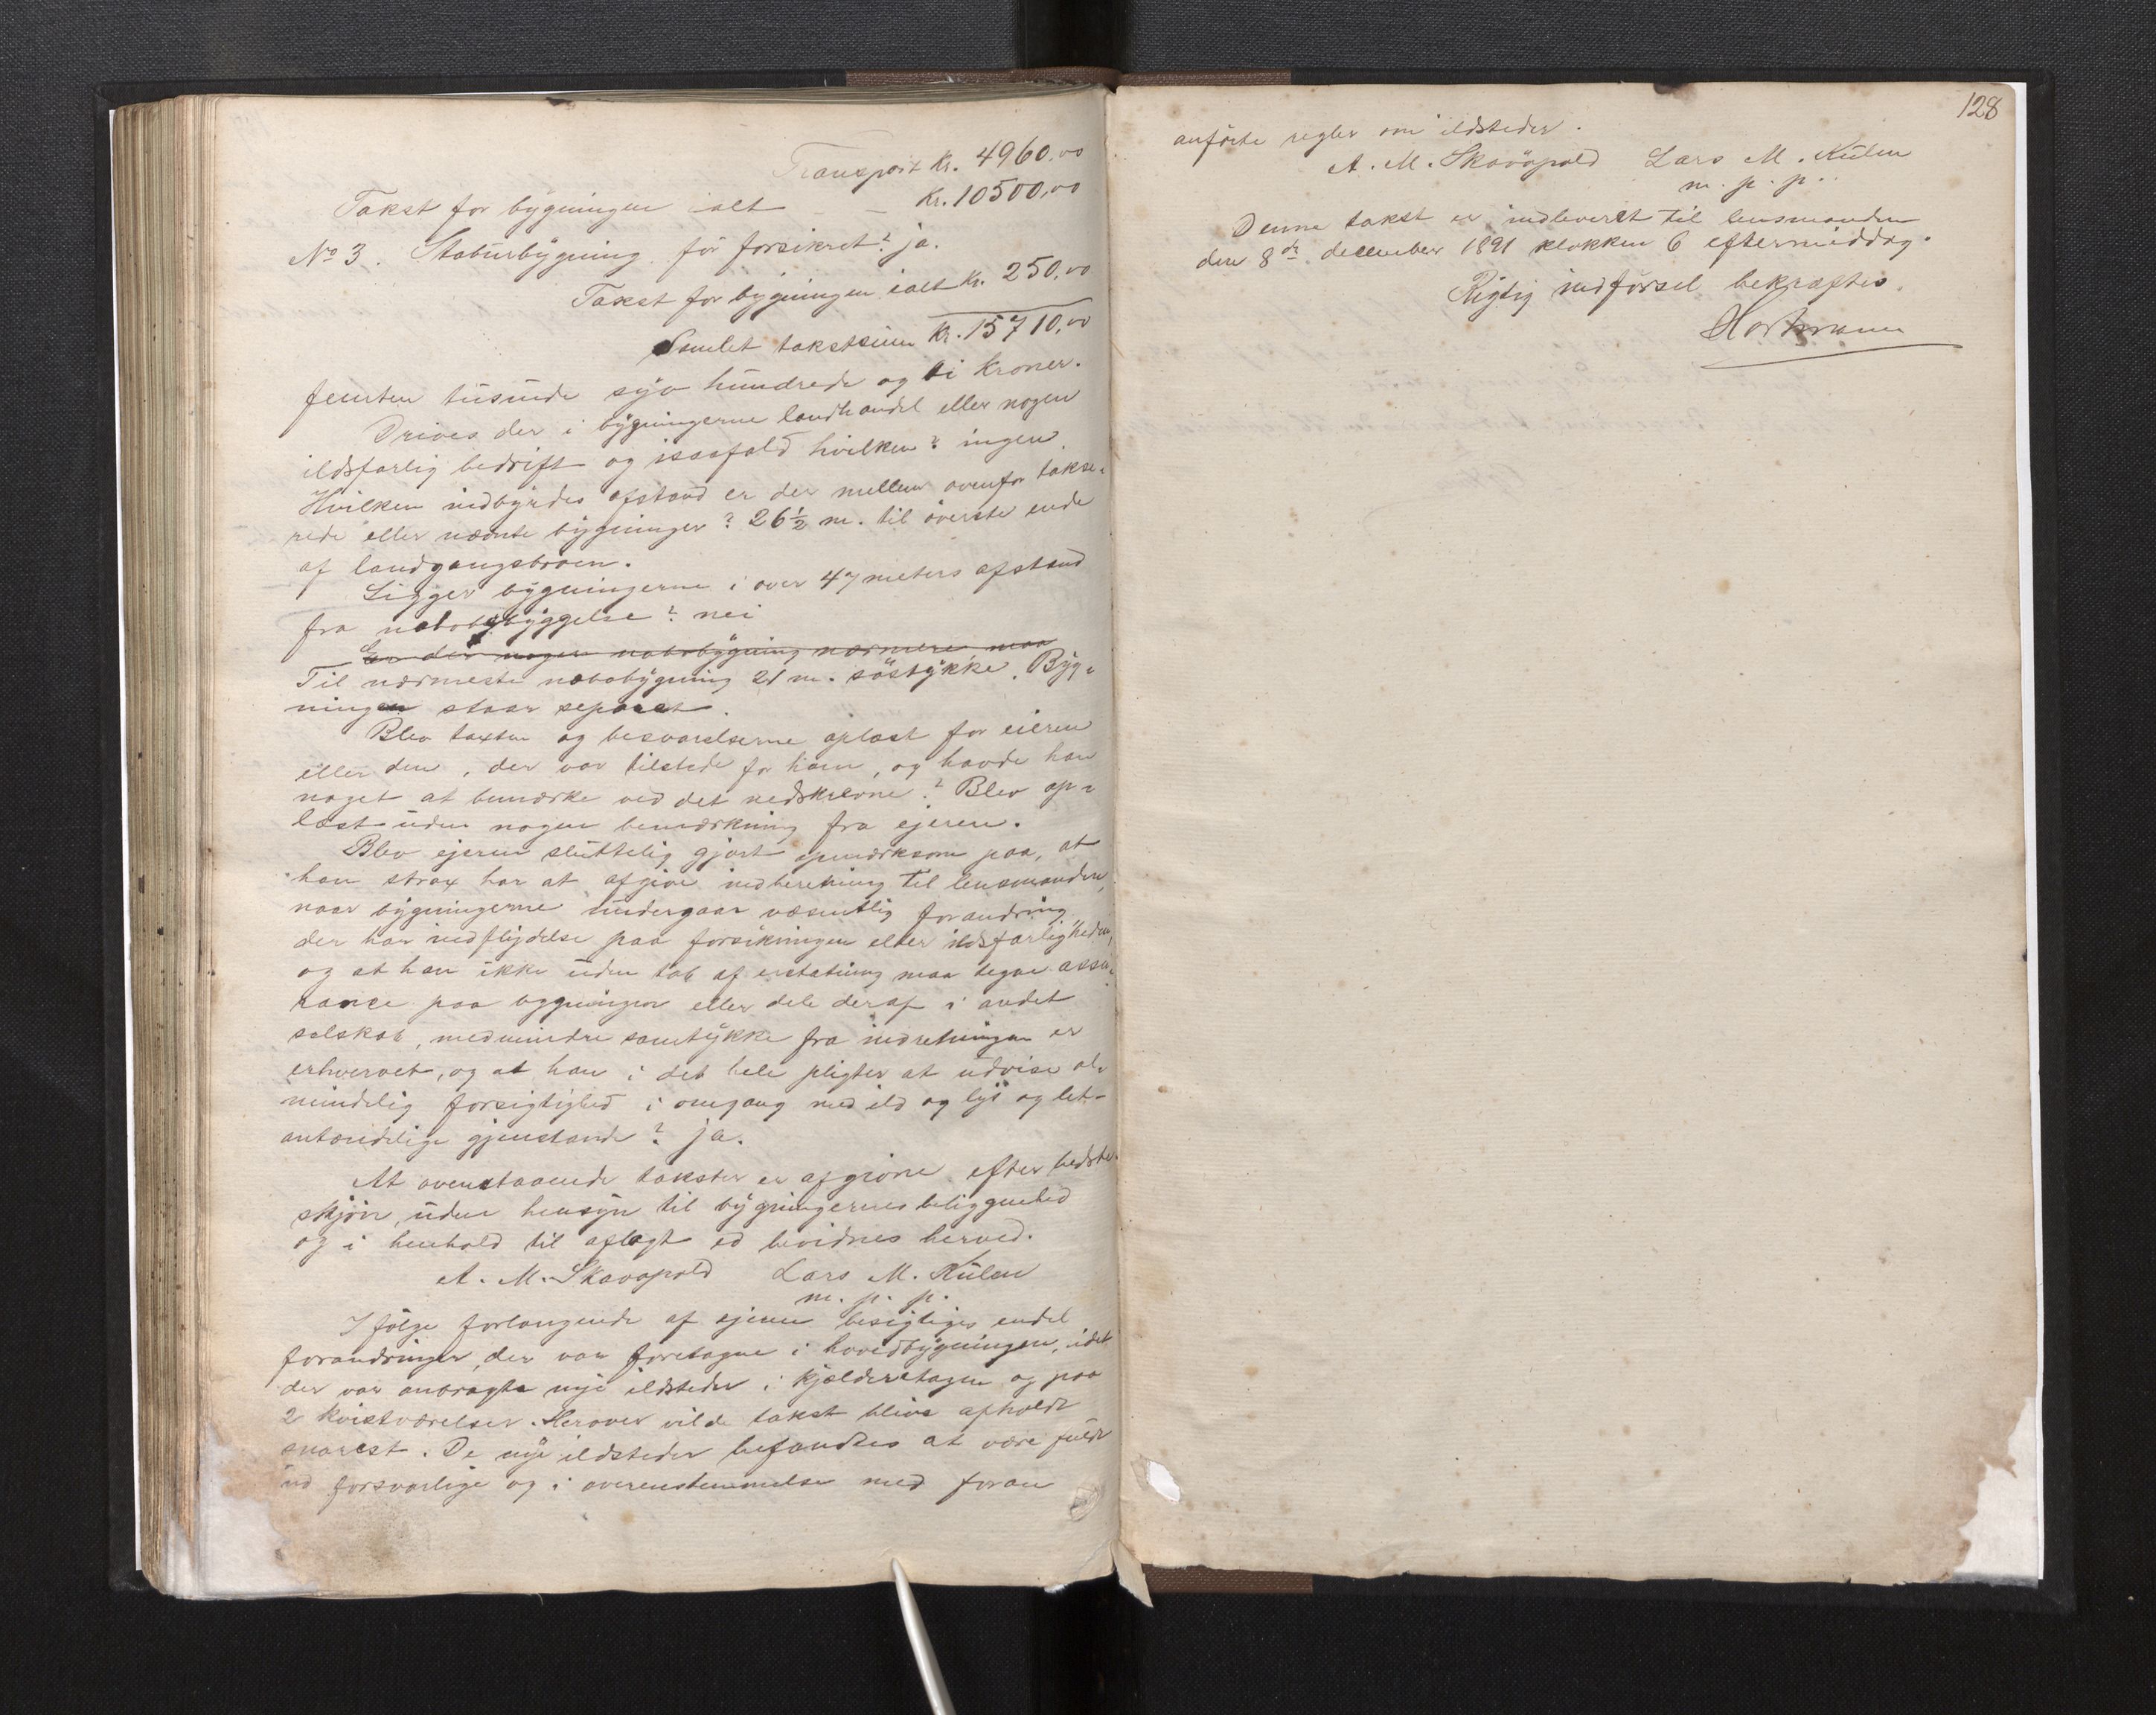 Transport Kr. 4960,00
Takst for bygningen ialt — Kr. 10500,00
No 3. Stabursbygning. før forsikret? ja.
Takst for bygningen ialt Kr. 250,00
Samlet takstsum Kr. 15710,00
femten tusinde syv hundrede og ti Kroner.
Drives der i bygningerne landhandel eller nogen
ildsfarlig bedrift og isaafald hvilken? ingen.
Hvilken indbyrdes afstand er der mellem ovenfor takse-
rede eller nævnte bygninger? 26½ m. til øverste ende
af landgangsbroen.
Ligger bygningerne i over 47 meters afstand
fra nabobebyggelse? nei
Er der nogen nabobygning nærmere maa
Til nærmeste nabobygning 21 m. søstykke. Byg-
ningen staar separat.
Blev taxten og besvarelserne oplæst for eieren
eller den, der var tilstede for ham, og havde han
noget at bemærke ved det nedskrevne? Blev op-
læst uden nogen bemærkning fra ejeren.
Blev ejeren sluttelig gjort opmærksom paa, at
han strax har at afgive indberetning til lensmanden,
naar bygningerne undergaar væsentlig forandring,
der har indflydelse paa forsikringen eller ildsfarligheden,
og at han ikke uden tab af erstatning maa tegne assu-
rance paa bygningen eller dele deraf i andet
selskab, medmindre samtykke fra indretningen er
erhvervet, og at han i det hele pligter at udvise al-
mindelig forsigtighed i omgang med ild og lys og let-
antændelige gjenstande? ja.
At ovenstaaende takster er afgivne efter bedste
skjøn, uden hensyn til bygningernes beliggenhed
og i henhold til aflagt ed bevidnes herved.
A. M. Skavøpold Lars M. Kulen
m. p. p.
Ifølge forlangende af ejeren besigtiges endel
forandringer, der var foretagne i hovedbygningen, idet
der var anbragte nye ildsteder i kjælderetagen og paa
2 kvistværelser. Herover vilde takst blive afholdt
snarest. De nye ildsteder befandtes at være fuldt
ud forsvarlige og i overenstemmelse med foran
128
anførte regler om ildsteder.
A. M. Skavøpold Lars M. Kulen
m. p. p.
Denne takst er indleveret til lensmanden
den 8de december 1891 klokken 6 eftermiddag.
Rigtig indførsel bekræftes.
Hartmann